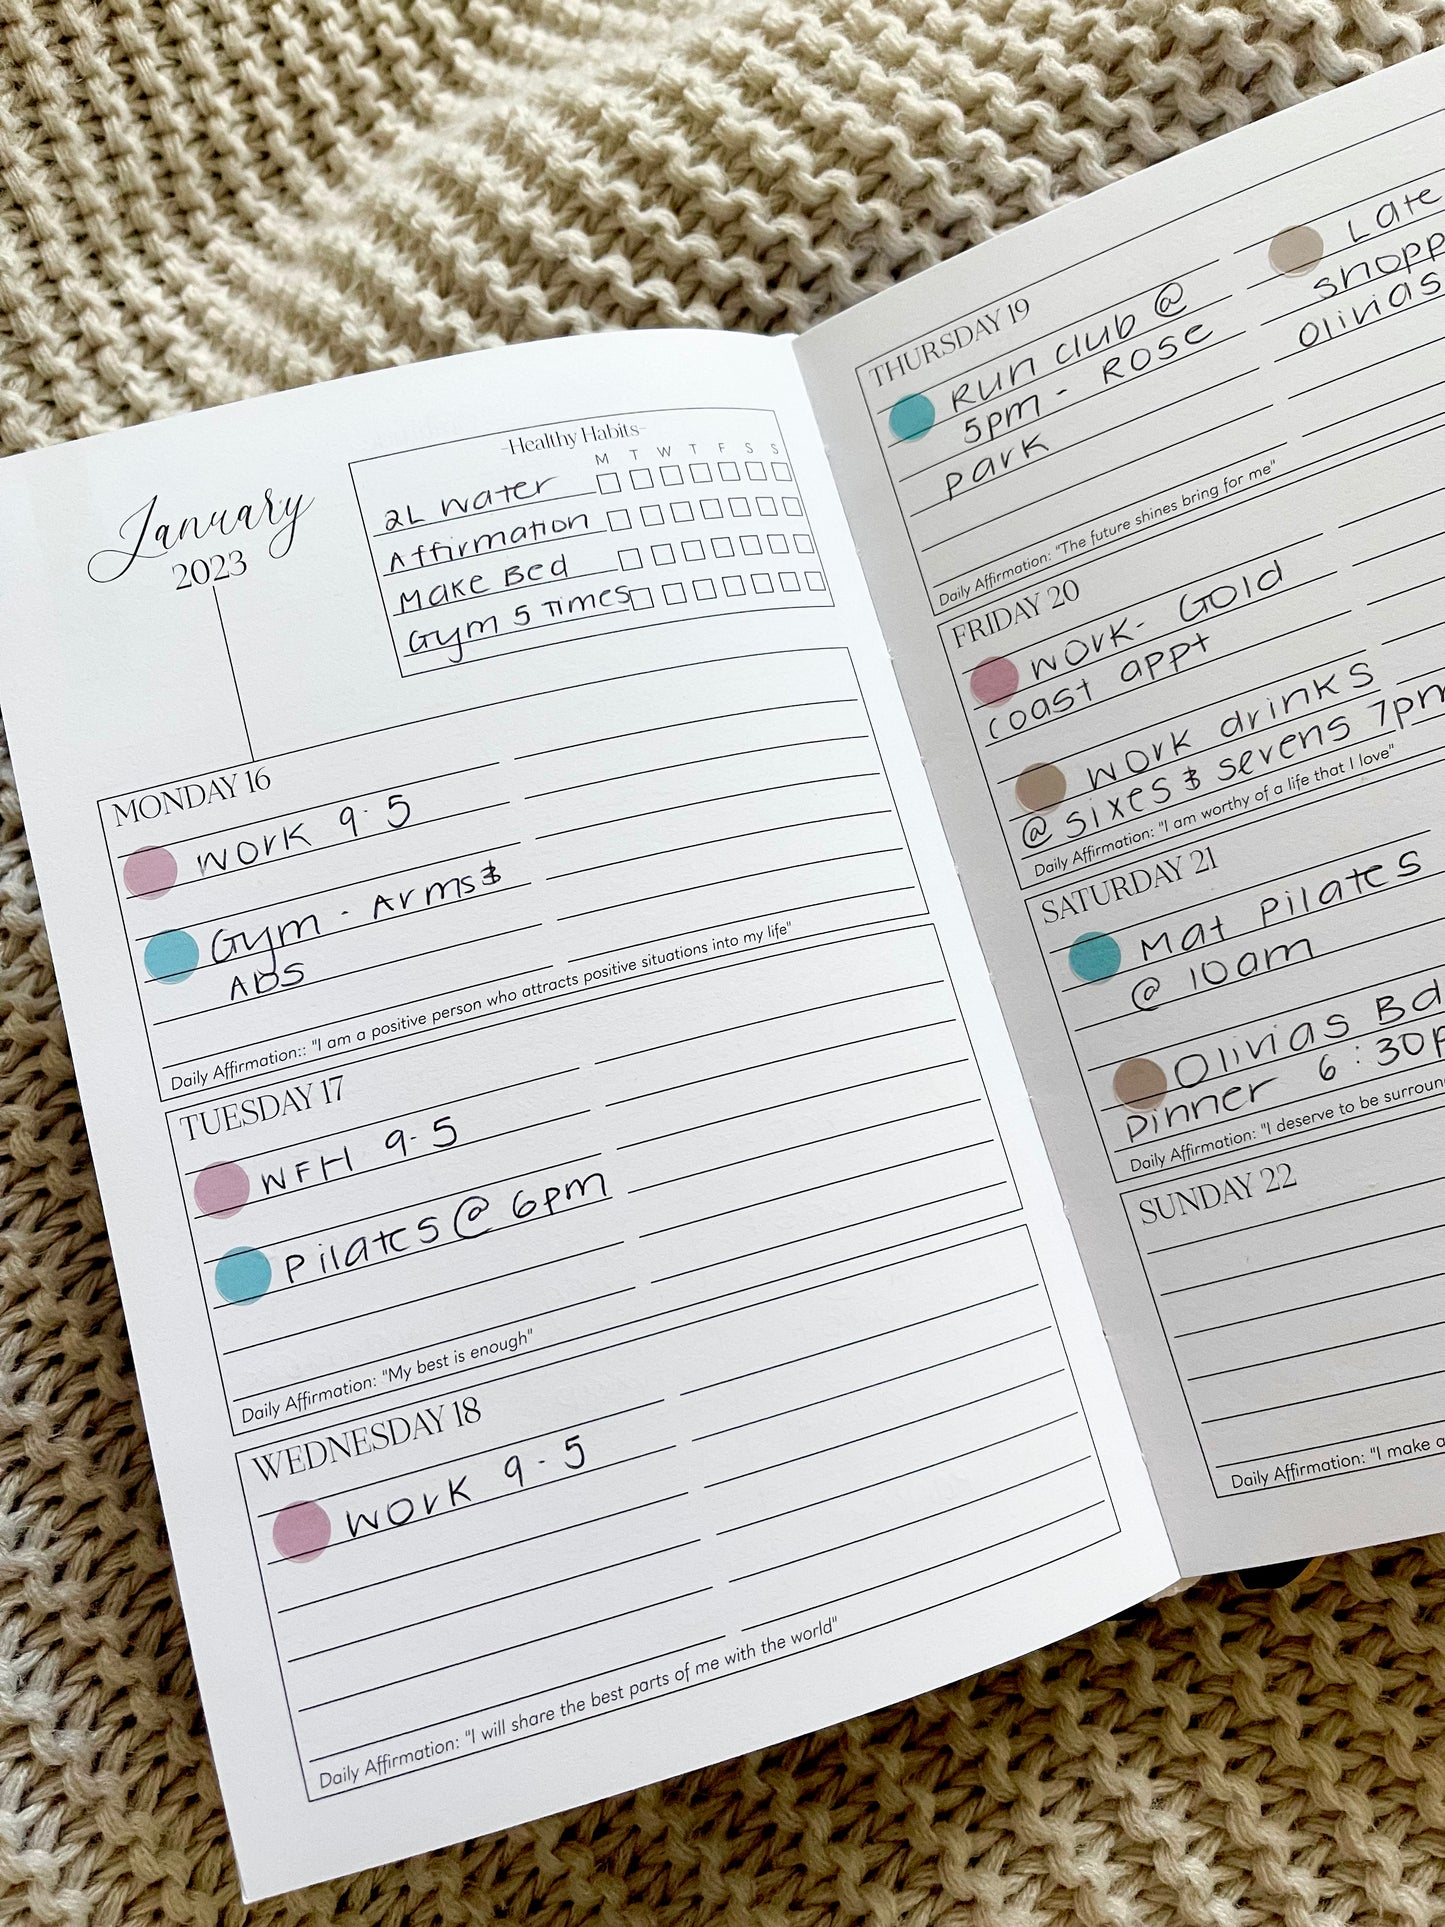 January
2023
-Healthy Habits-
M T W T F S S
2L Water
Affirmation
Make Bed
Gym 5 Times
MONDAY 16
Work 9-5
Gym - Arms &
Abs
Daily Affirmation:: "I am a positive person who attracts positive situations into my life"
TUESDAY 17
WFH 9-5
Pilates @ 6pm
Daily Affirmation: "My best is enough"
WEDNESDAY 18
Work 9-5
Daily Affirmation: "I will share the best parts of me with the world"
THURSDAY 19
Run club @
5pm - Rose
Park
Late
shopp
Olivias
Daily Affirmation: "The future shines bring for me"
FRIDAY 20
Work- Gold
coast appt
Work drinks
@ sixes & sevens 7pm
Daily Affirmation: "I am worthy of a life that I love"
SATURDAY 21
Mat Pilates
@ 10am
Olivias Bd
Dinner 6:30p
Daily Affirmation: "I deserve to be surroun
SUNDAY 22
Daily Affirmation: "I make a